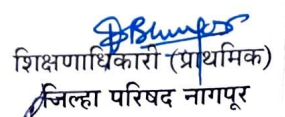 शिक्षणाधिकारी (प्राथमिक)
जिल्हा परिषद नागपूर